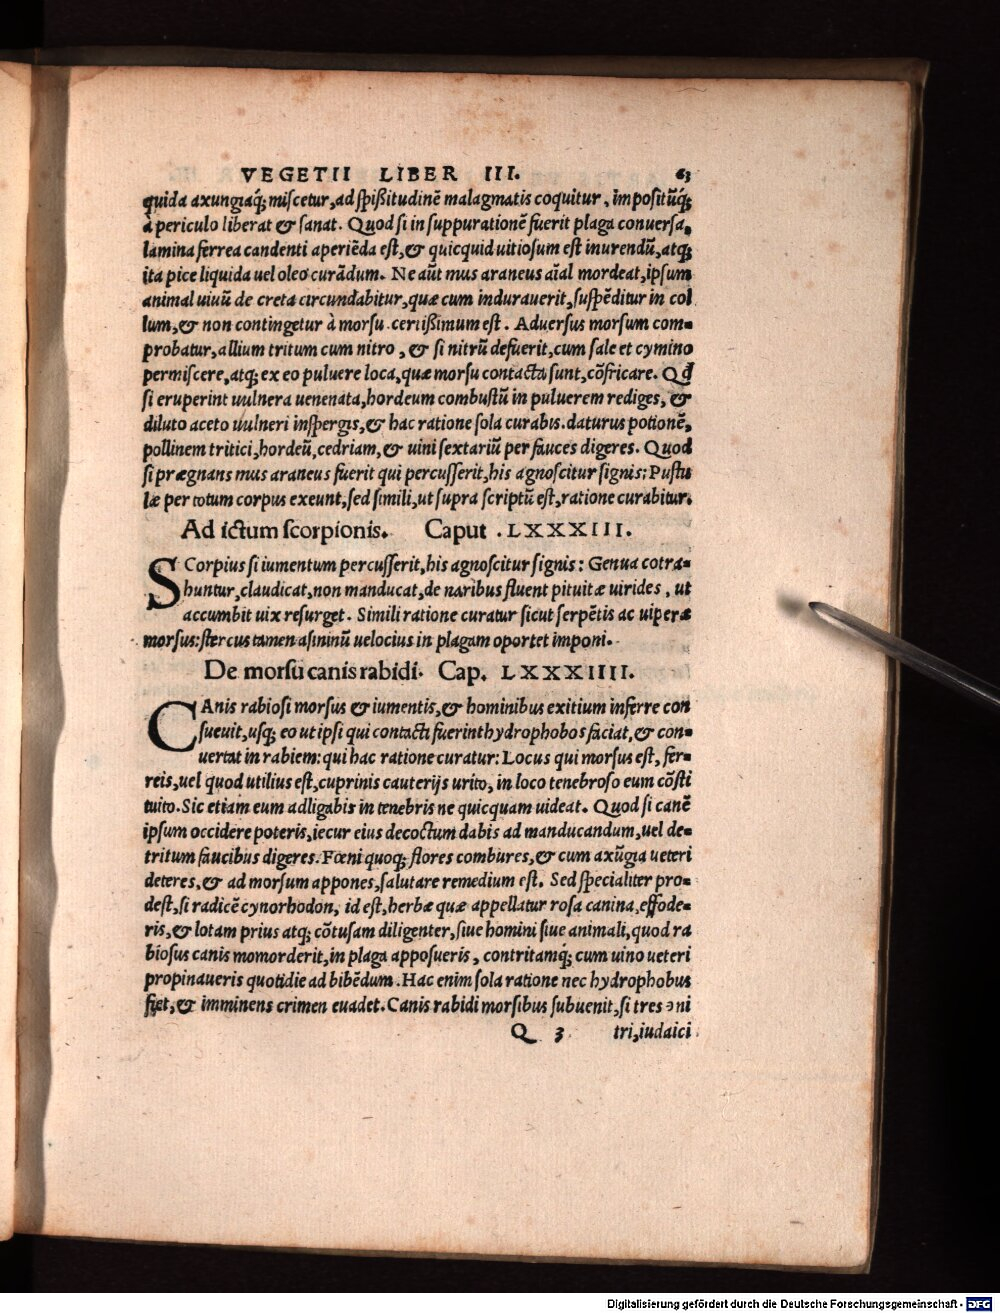 VEGETII LIBER III. 63
quida axungiaq́; miscetur, ad spißitudinē malagmatis coquitur, impositūq́;
à periculo liberat & sanat. Quod si in suppurationē fuerit plaga conuersa,
lamina ferrea candenti aperiēda est, & quicquid uitiosum est inurendū, atq;
ita pice liquida uel oleo curādum. Ne aūt mus araneus aīal mordeat, ipsum
animal uiuū de creta circundabitur, quæ cum indurauerit, suspēditur in col
lum, & non contingetur à morsu. certißimum est. Aduersus morsum com-
probatur, allium tritum cum nitro, & si nitrū defuerit, cum sale et cymino
permiscere, atq; ex eo puluere loca, quæ morsu contacta sunt, cōfricare. Qđ
si eruperint uulnera uenenata, hordeum combustū in puluerem rediges, &
diluto aceto uulneri inspergis, & hac ratione sola curabis. daturus potionē,
pollinem tritici, hordeū, cedriam, & uini sextariū per fauces digeres. Quod
si prægnans mus araneus fuerit qui percusserit, his agnoscitur signis: Pustu
læ per totum corpus exeunt, sed simili, ut supra scriptū est, ratione curabitur.
Ad ictum scorpionis. Caput .LXXXIII.
SCorpius si iumentum percusserit, his agnoscitur signis: Genua cotra-
huntur, claudicat, non manducat, de naribus fluent pituitæ uirides, ut
accumbit uix resurget. Simili ratione curatur sicut serpētis ac uiperæ
morsus: stercus tamen asininū uelocius in plagam oportet imponi.
De morsu canis rabidi. Cap. LXXXIIII.
CAnis rabiosi morsus & iumentis, & hominibus exitium inferre con
sueuit, usq; eo ut ipsi qui contacti fuerint hydrophobos faciat, & con-
uertat in rabiem: qui hac ratione curatur: Locus qui morsus est, fer-
reis, uel quod utilius est, cuprinis cauterijs urito, in loco tenebroso eum cōsti
tuito. Sic etiam eum adligabis in tenebris ne quicquam uideat. Quod si canē
ipsum occidere poteris, iecur eius decoctum dabis ad manducandum, uel de-
tritum faucibus digeres. Fœni quoq; flores combures, & cum axūgia ueteri
deteres, & ad morsum appones, salutare remedium est. Sed specialiter pro-
dest, si radicē cynorhodon, id est, herbæ quæ appellatur rosa canina, effode-
ris, & lotam prius atq; cōtusam diligenter, siue homini siue animali, quod ra
biosus canis momorderit, in plaga apposueris, contritamq́; cum uino ueteri
propinaueris quotidie ad bibēdum. Hac enim sola ratione nec hydrophobus
fiet, & imminens crimen euadet. Canis rabidi morsibus subuenit, si tres ɔni
Q 3 tri, iudaici
Digitalisierung gefördert durch die Deutsche Forschungsgemeinschaft - DFG